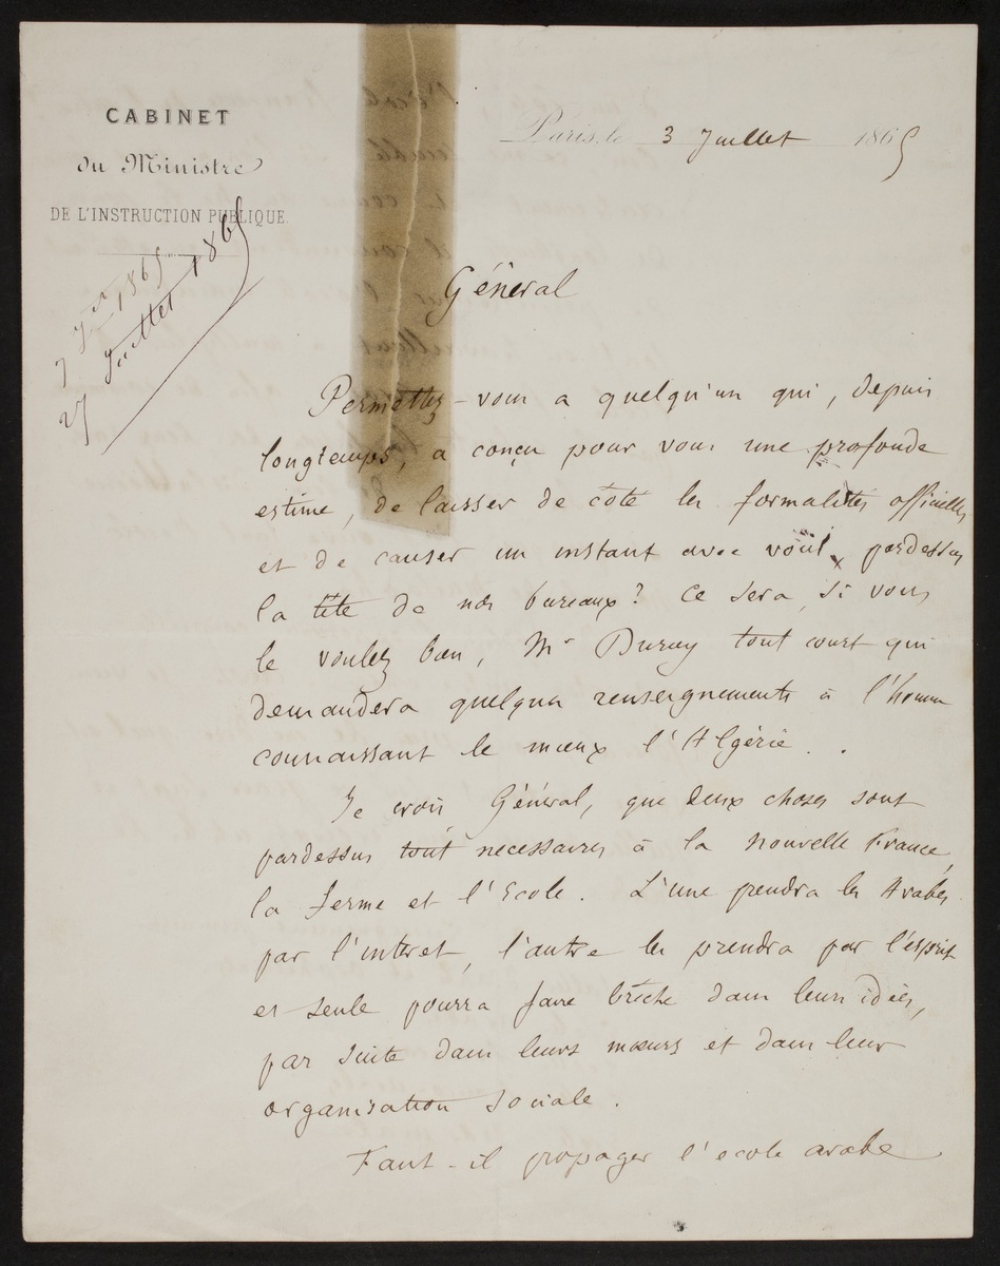 CABINET
du Ministre
DE L'INSTRUCTION PUBLIQUE.
Paris, le 3 Juillet 1865
1865
27 Juillet 1865
Général
Permettez-vous a quelqu'un qui, depuis
longtemps, a conçu pour vous une profonde
estime, de laisser de côté les formalités officielles
et de causer un instant avec vous pardessus
la tête de nos bureaux? Ce sera, si vous
le voulez bien, Mr Duruy tout court qui
demandera quelques renseignements à l'homme
connaissant le mieux l'Algérie.
Je crois Général, que deux choses sont
pardessus tout necessaires à la Nouvelle France,
la ferme et l'Ecole. L'une prendra les Arabes
par l'interet, l'autre les prendra par l'esprit
et seule pourra faire brêche dans leurs idées,
par suite dans leurs mœurs et dans leur
organisation sociale.
Faut-il propager l'ecole arabe